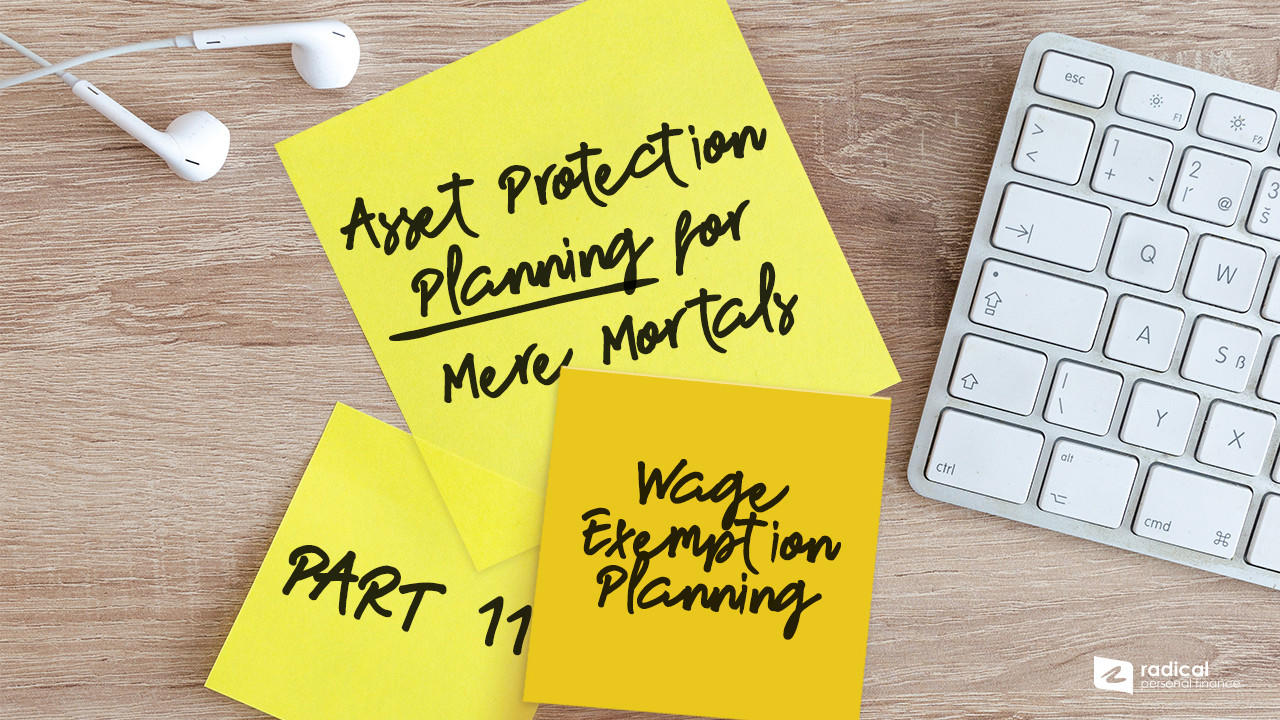 Asset Protection
Planning for
Mere Mortals
Wage
Exemption
Planning
PART 11
esc
F1
F2
>
<
1
+
`
2
ſ
@
3
š
Q
W
A
S ß
|
\
Y
X
ctrl
alt
cmd
radical
personal finance